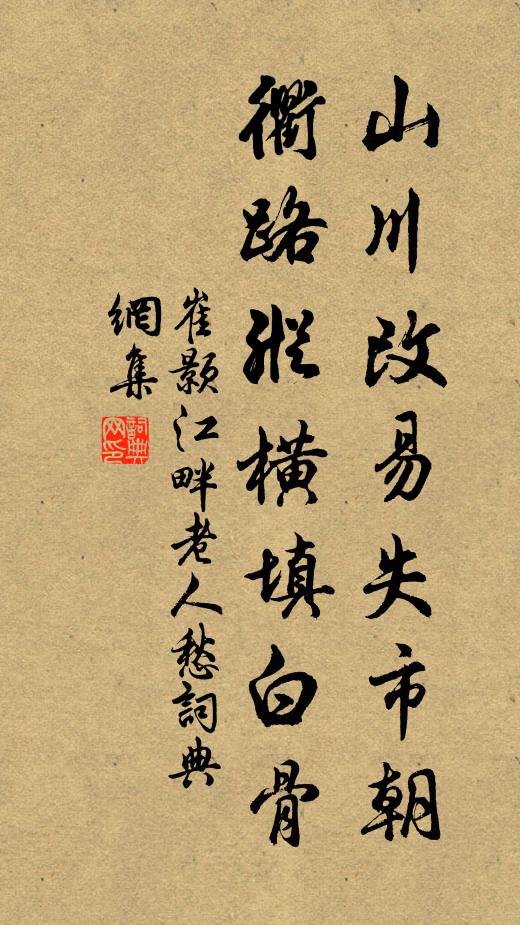 山川改易失市朝
衢路縱橫填白骨
崔颢江畔老人愁詞典
網集
詞典網印